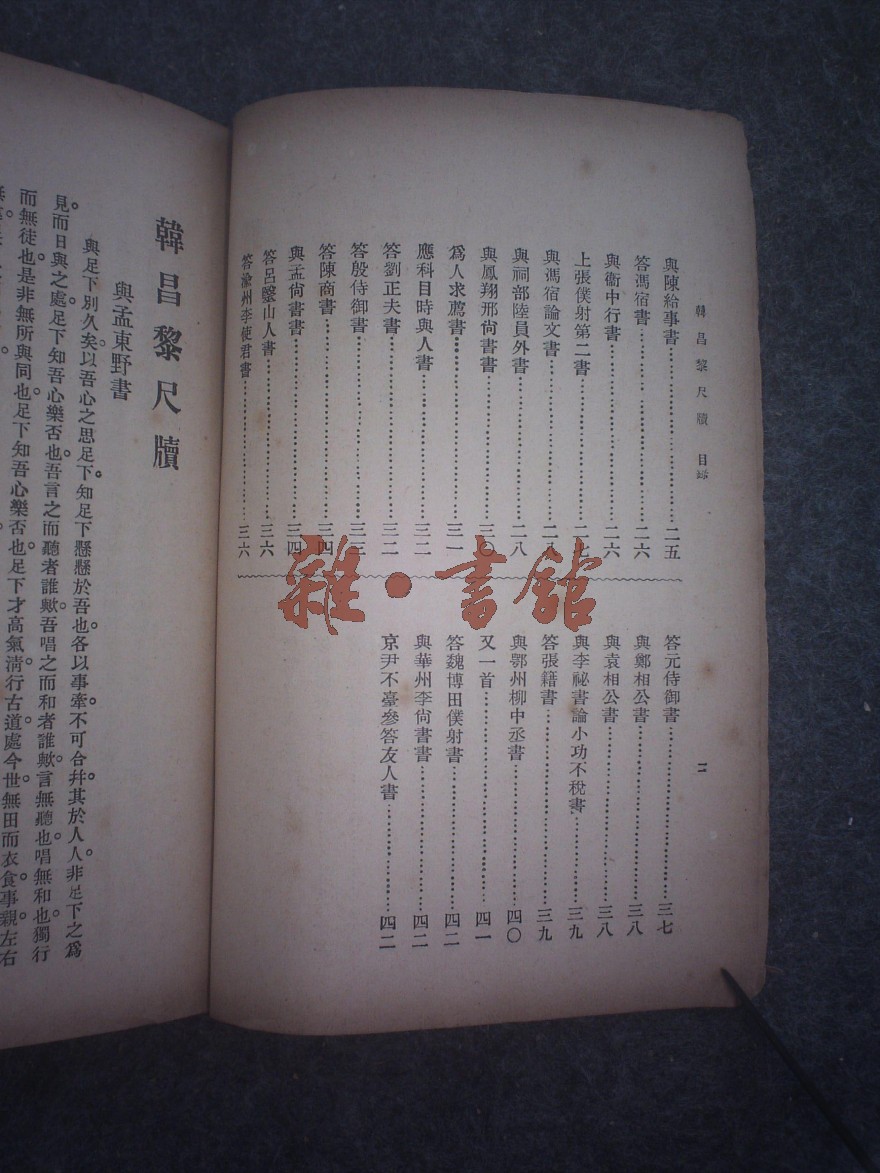 韓昌黎尺牘　目錄
二
與陳給事書……二五
答馮宿書……二六
與衞中行書……二六
上張僕射第二書……二七
與馮宿論文書……二八
與祠部陸員外書……二八
與鳳翔邢尚書書……三〇
爲人求薦書……三一
應科目時與人書……三二
答劉正夫書……三二
答殷侍御書……三三
答陳商書……三四
與孟尚書書……三四
答呂毉山人書……三六
答渝州李使君書……三六
答元侍御書……三七
與鄭相公書……三八
與袁相公書……三八
與李祕書論小功不稅書……三九
答張籍書……三九
與鄂州柳中丞書……四〇
又一首……四一
答魏博田僕射書……四二
與華州李尚書書……四二
京尹不臺參答友人書……四二
雜·書館
韓昌黎尺牘
與孟東野書
與足下別久矣。以吾心之思足下。知足下懸懸於吾也。各以事牽。不可合幷。其於人人。非足下之爲
見。而日與之處。足下知吾心樂否也。吾言之而聽者誰歟。吾唱之而和者誰歟。言無聽也。唱無和也。獨行
而無徒也。是非無所與同也。足下知吾心樂否也。足下才高氣清。行古道。處今世。無田而衣食。事親左右